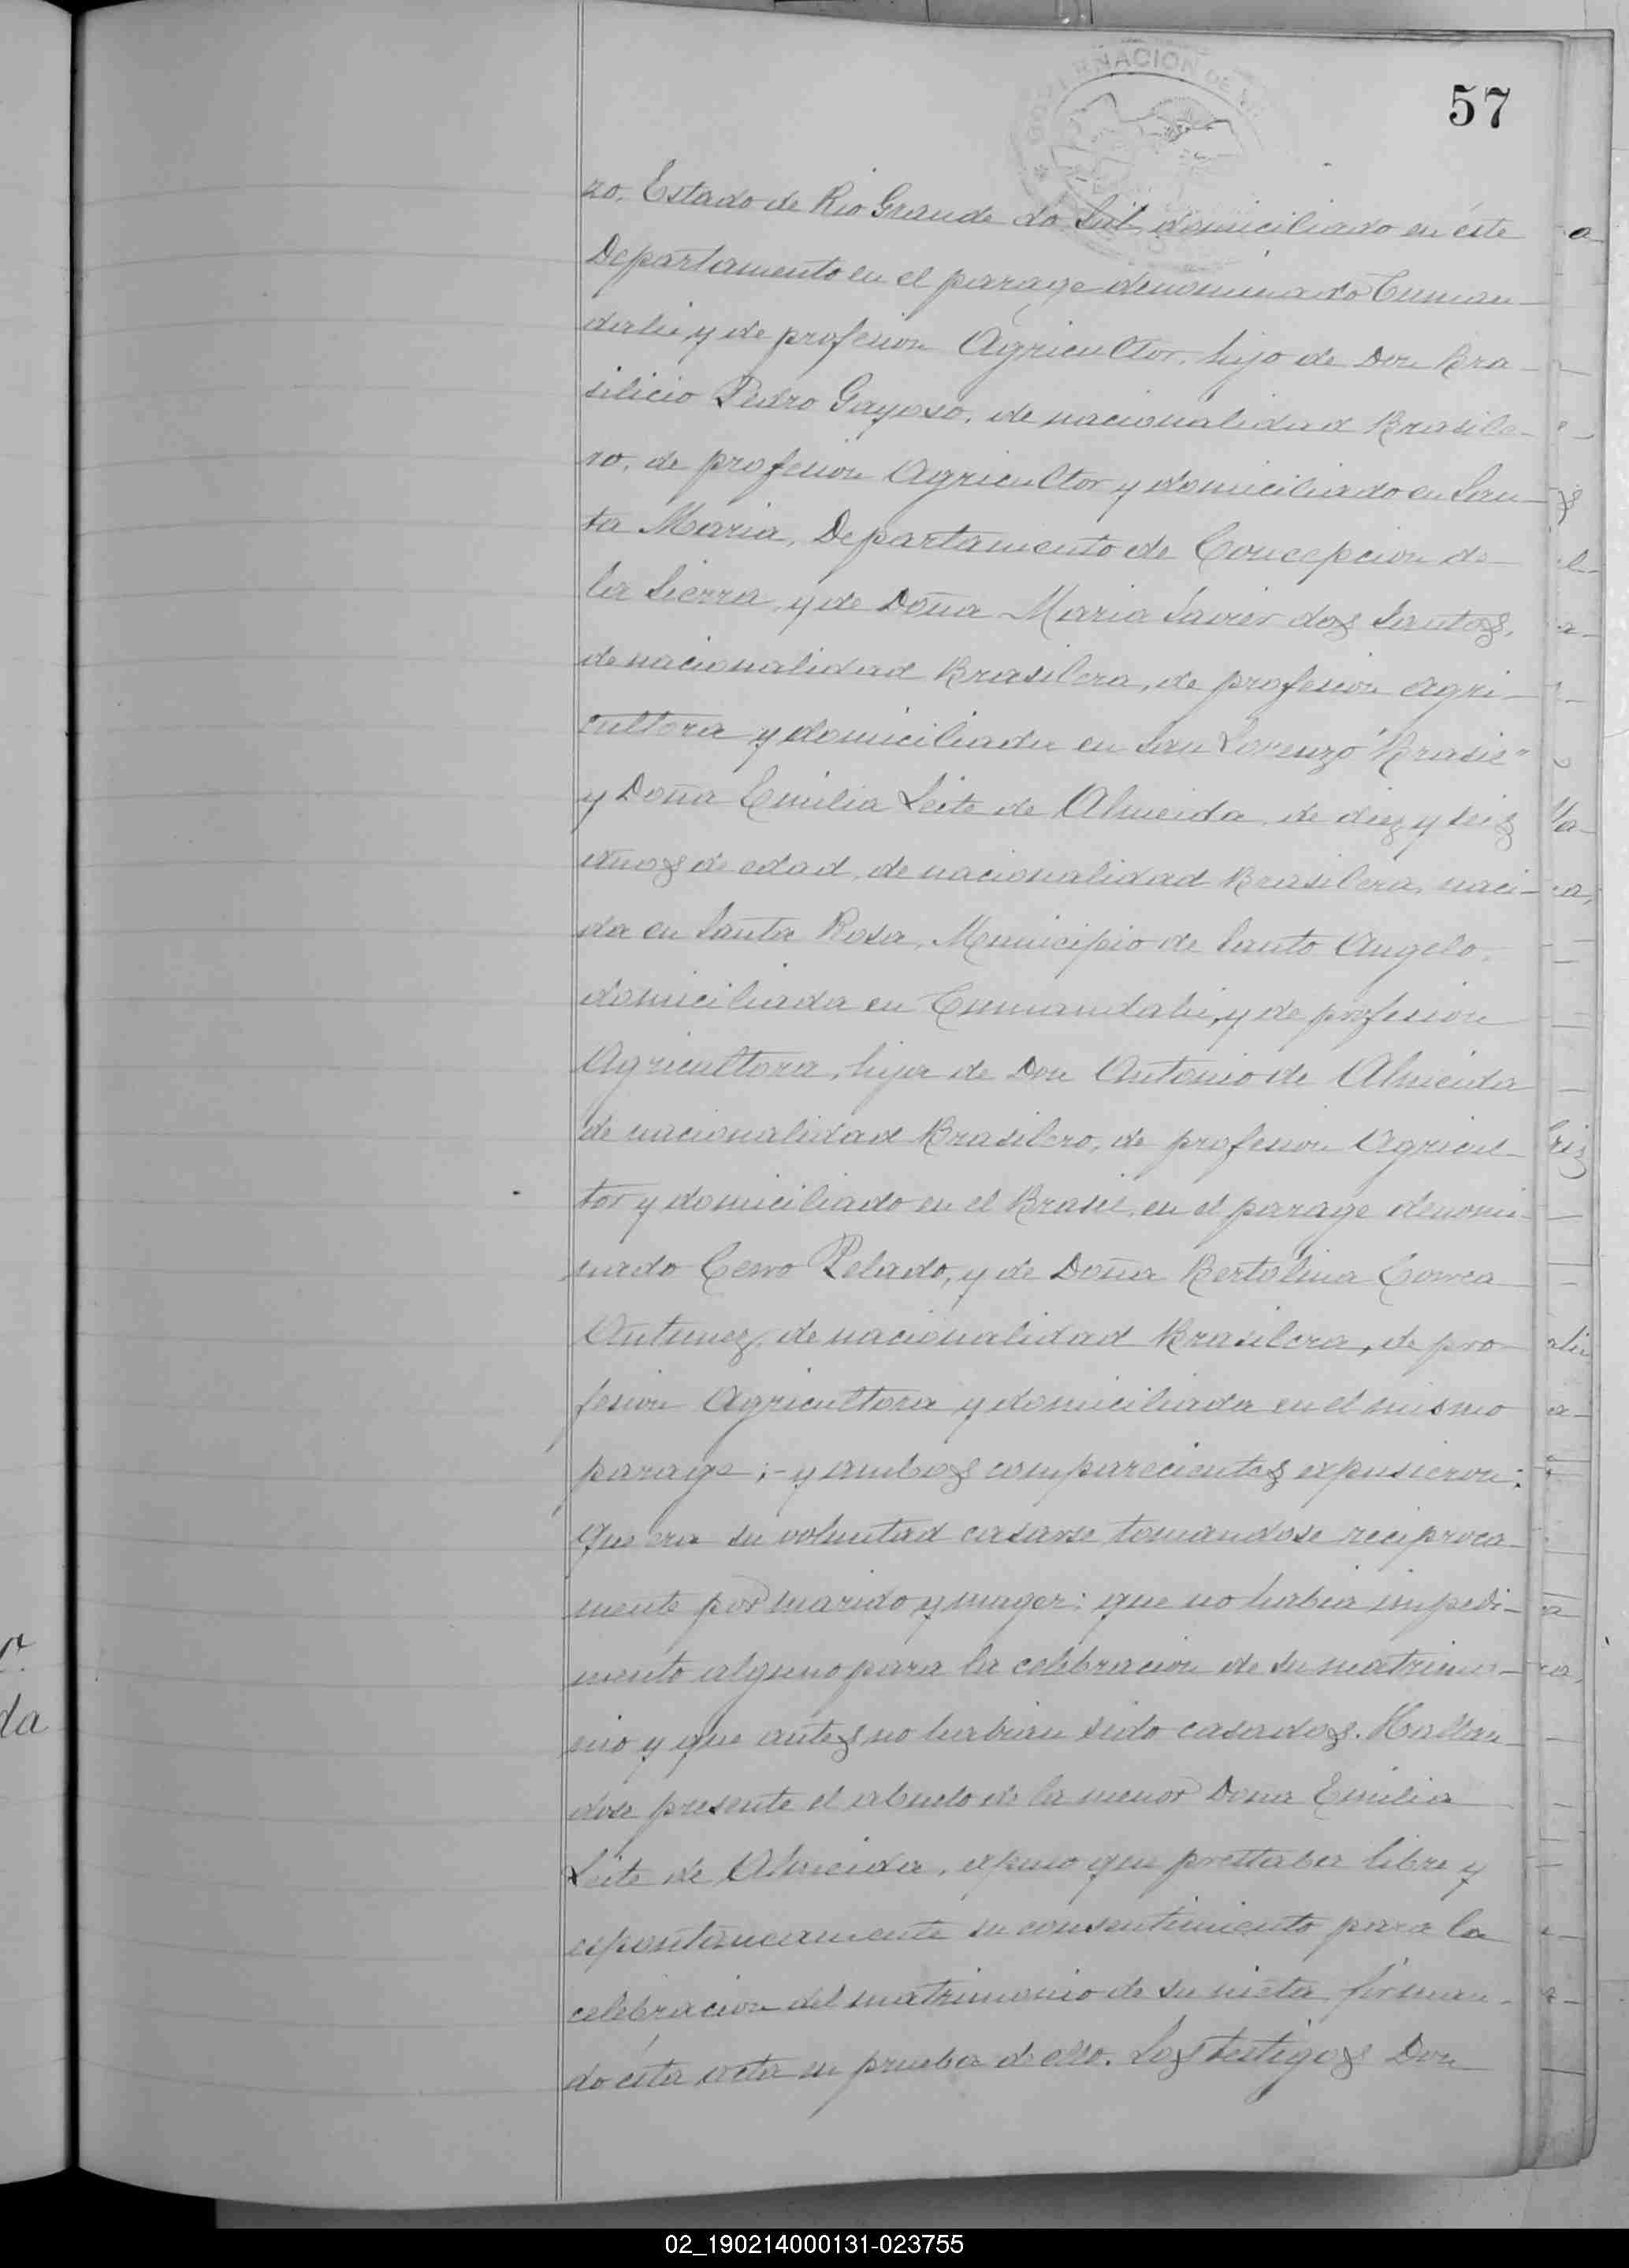 57
GOBERNACION DE
zo, Estado de Rio Grande do Sul, domiciliado en éste
Departamento en el parage denominado Cuman-
dahi y de profesion Agricultor, hijo de Don Bra-
silicio Pedro Gayoso, de nacionalidad Brasile-
ro, de profesion Agricultor y domiciliado en San-
ta Maria, Departamento de Concepcion de
la Sierra, y de Doña Maria Savier dos Santos,
de nacionalidad Brasilera, de profesion agri-
cultora y domiciliada en San Lorenzo "Brasil"
y Doña Emilia Leite de Almeida, de diez y seis
años de edad, de nacionalidad Brasilera, naci-
da en Santa Rosa, Municipio de Santo Angelo,
domiciliada en Cumandahi, y de profesion
Agricultora, hija de Don Antonio de Almeida
de nacionalidad Brasilero, de profesion Agricul-
tor y domiciliado en el Brasil, en el parage denomi-
nado Cerro Pelado, y de Doña Bertolina Correa
Antunez, de nacionalidad Brasilera, de pro-
fesion Agricultora y domiciliada en el mismo
parage; - y ambos comparecientes expusieron:
Que era su voluntad casarse tomandose reciproca-
mente por marido y muger; que no habia impedi-
mento alguno para la celebracion de su matrimo-
nio y que antes no habian sido casados. Hallan-
dose presente el abuelo de la menor Doña Emilia
Leite de Almeida, expuso que prestaba libre y
espontaneamente su consentimiento para la
celebracion del matrimonio de su nieta firman-
do ésta acta en prueba de ello. Los testigos Don
da
02_190214000131-023755